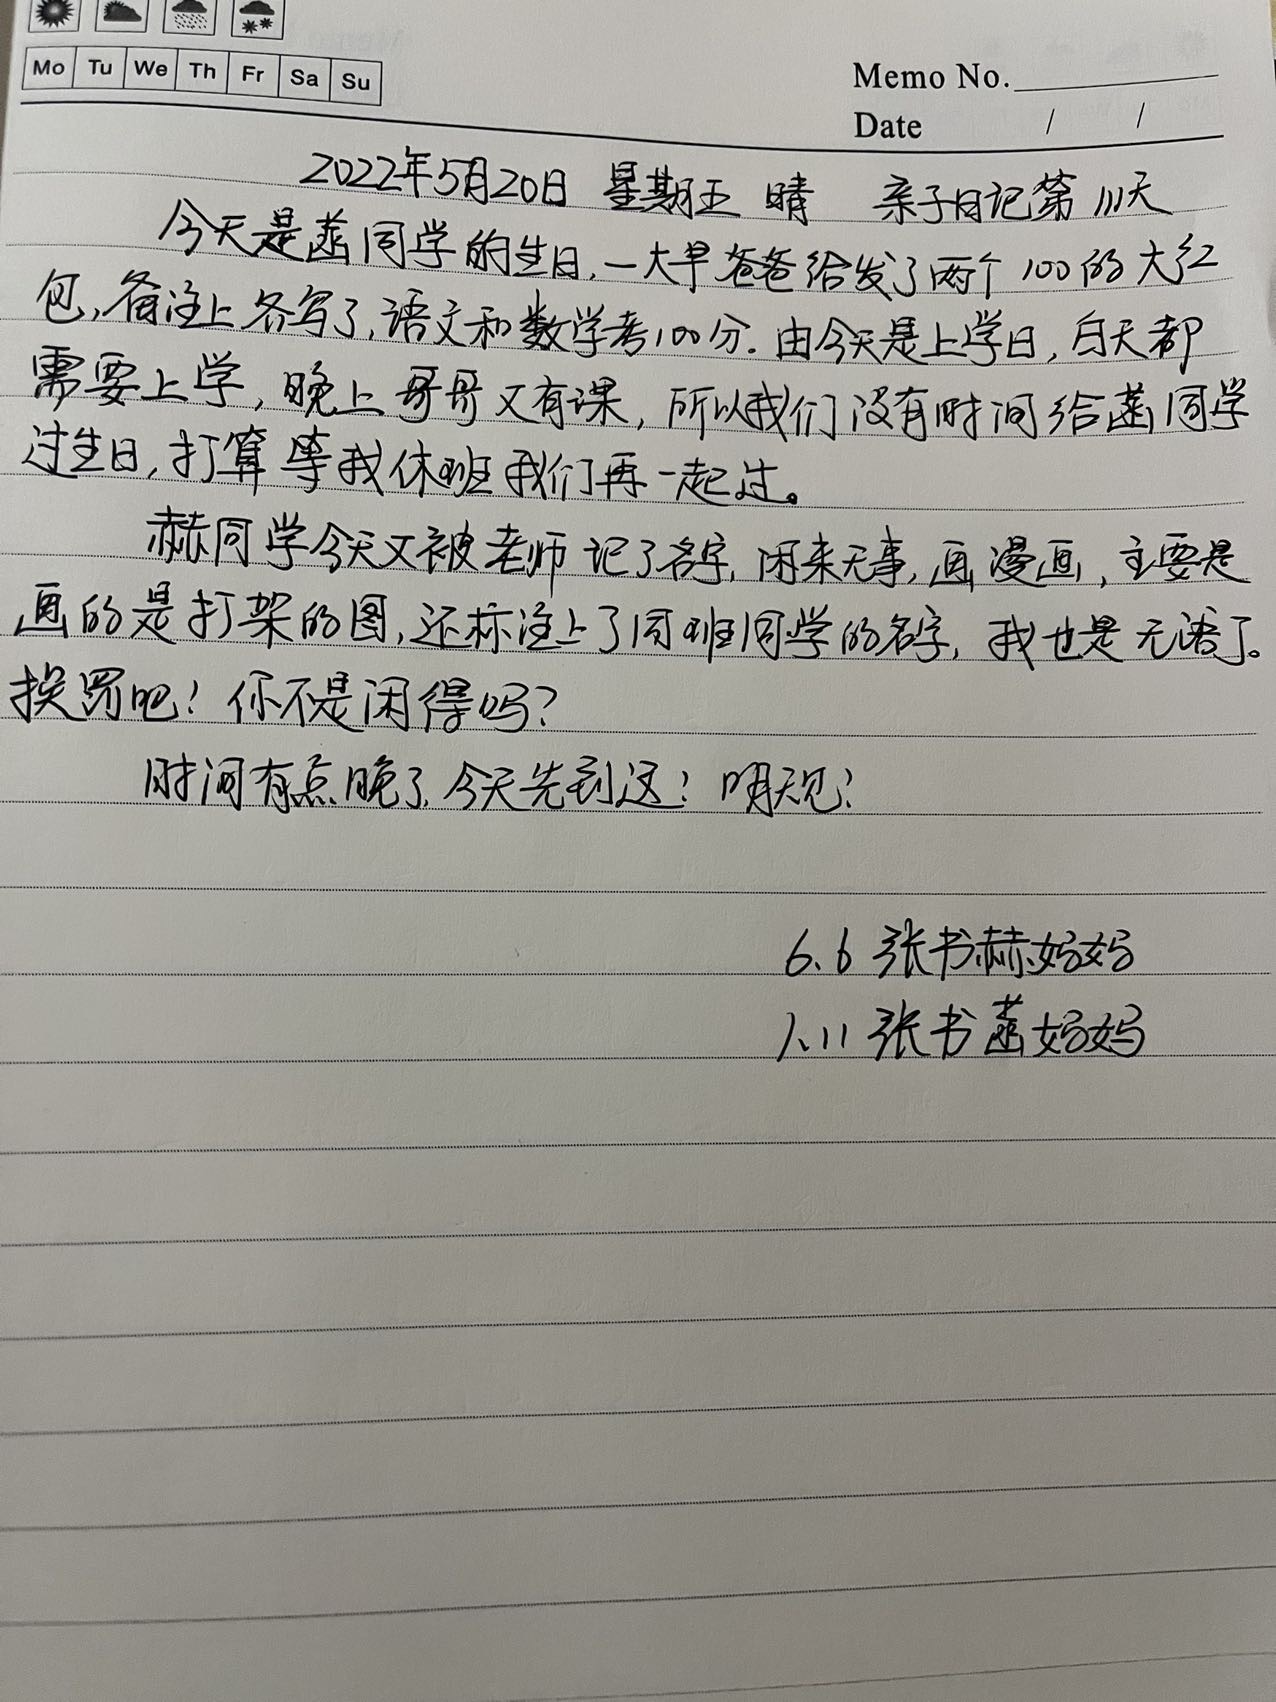 Mo Tu We Th Fr Sa Su
Memo No.
Date / /
2022年5月20日 星期五 晴 亲子日记第111天
今天是菡同学的生日,一大早爸爸给发了两个100的大红
包,备注上各写了,语文和数学考100分.由今天是上学日,白天都
需要上学,晚上哥哥又有课,所以我们没有时间给菡同学
过生日,打算等我休班我们再一起过。
赫同学今天又被老师记了名字,闲来无事,画漫画,主要是
画的是打架的图,还标注上了同班同学的名字,我也是无语了。
挨罚吧!你不是闲得吗?
时间有点晚了,今天先到这!明天见!
6.6 张书赫妈妈
1.11 张书菡妈妈